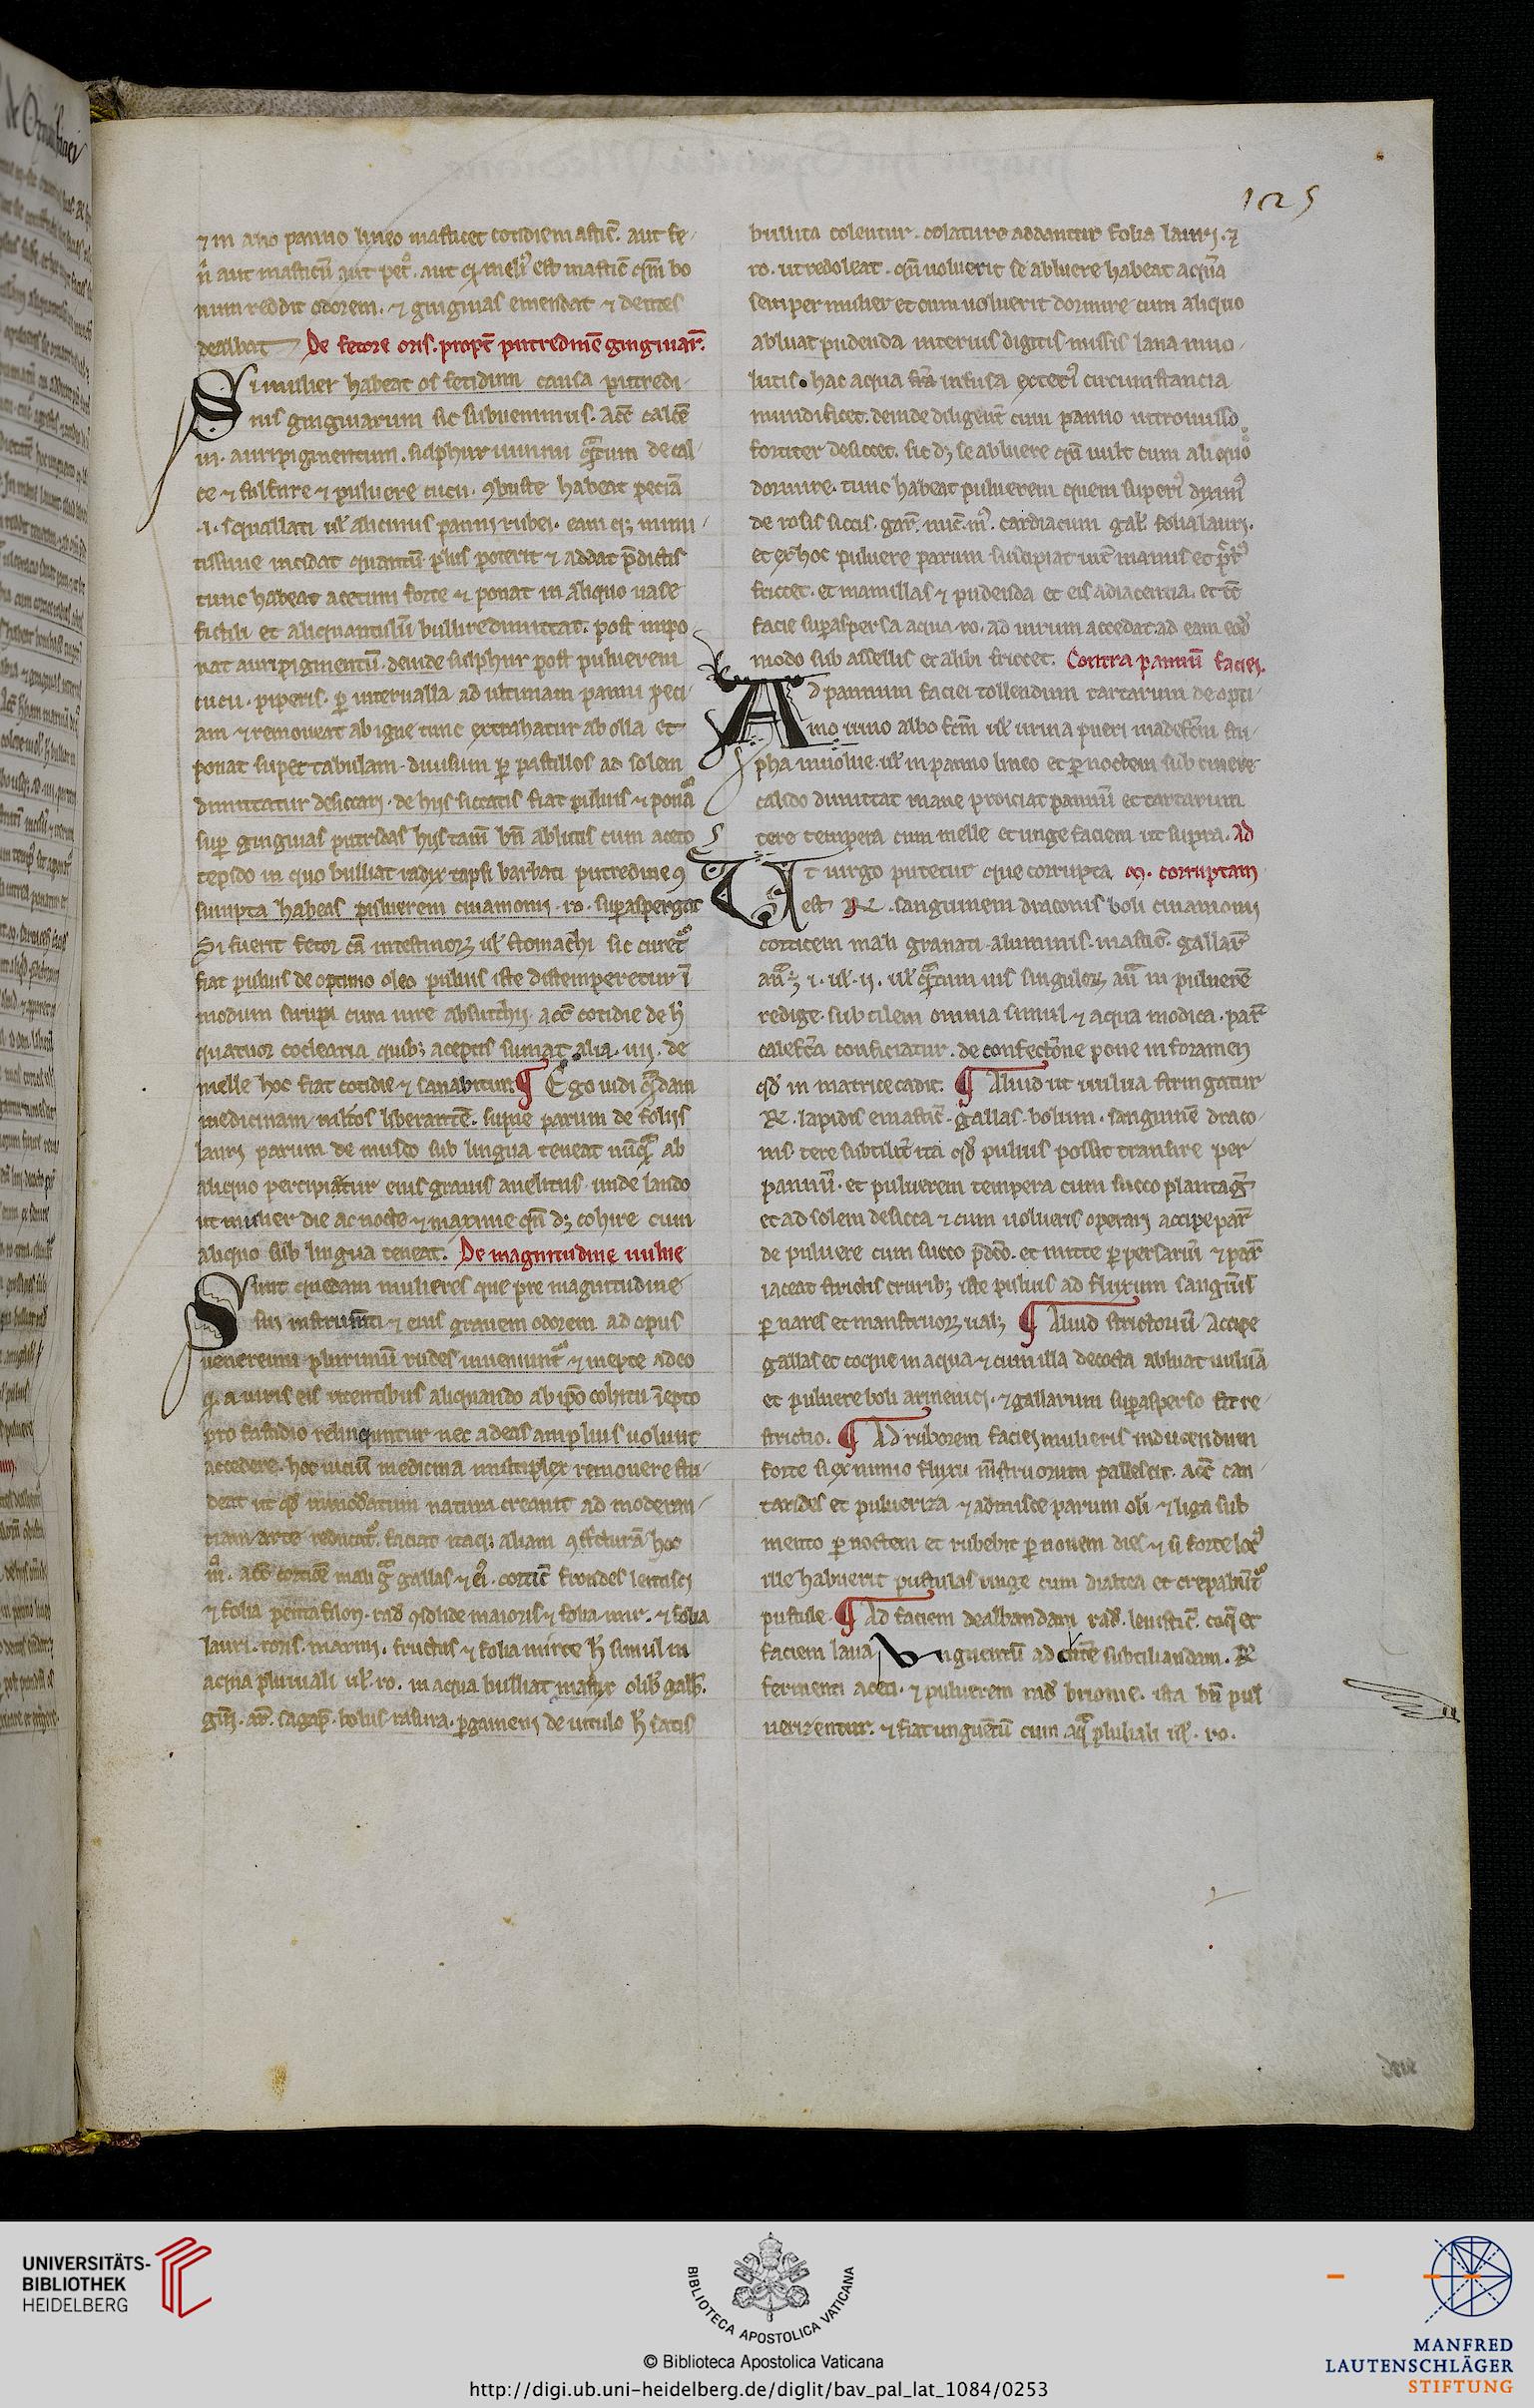 125
⁊ in alio panno lineo masticet cotidie mastic̄. aut fe
n̄ aut masticū aut pet᷒. aut quod meli᷒ est mastic̄ q̄m bo
num reddit odorem. ⁊ gingiuas emendat ⁊ dentes
dealbat De fetore oris. propt̄ putredinē gingiuar̄.
Si mulier habeat os fetidum causa putredi
nis gingiuarum sic subuenimus. acc̄ calcē
auripigmentum. sulphur uiuum decal
ce ⁊ sulfure ⁊ puluere cucu. ꝯbuste habeat peciā
.i. squallati ul̄ alicuius panni rubei. eamqꝫ minu
tissime incidat quantū plus poterit ⁊ addat p̄dictis
tunc habeat acetum forte ⁊ ponat in aliquo uase
fictili et aliquantulū bullire dimittat. post inpo
nat auripigmentū. deinde sulphur post puluerem
cucu. piperis. ꝑ interualla ad ultimam panni peci
am ⁊ remoueat ab igne tunc extrahatur ab olla et
ponat super tabulam. diuisum ꝑ pastillos ad solem
dimittatur desiccari. de hijs siccatis fiat puluis ⁊ ponat᷒
suꝑ gingiuas putridas hijs tam̄ bn̄ ablutis cum aceto
tepido in quo bulliat radix tapsi barbati putredine ꝯ
sumpta habeas puluerem cinamomi. ro. suꝑaspergat
Si fuerit fetor cā intestinoꝝ ul̄ stomachi sic curet᷒
fiat puluis de optimo oleo puluis iste distemperetur ī
modum sirupi cum iure absinthij. acc̄ cotidie de h̄
quatuor coclearia quibꝫ acceptis sumat alia .iiij. de
melle hoc fiat cotidie ⁊ sanabitur. ¶ Ego uidi quādam
medicinam ml̄tos liberantē. sume parum de folijs
lauri parum de musco sub lingua teneat nūquā ab
aliquo percipiatur eius grauis anelitus. unde laudo
ut mulier die ac nocte ⁊ maxime qn̄ dꝫ cohire cum
aliquo sub lingua teneat. De magnitudine uulue
Sunt quedam mulieres que pre magnitudine
sui instrumēti ⁊ eius grauem odorem ad opus
uenereum plurimū rudes inueniunt᷒ ⁊ inepte adeo
quod a uiris eis utentibus aliquando ab ipo cohitu īcepto
pro fastidio relinquntur nec ad eas amplius uolunt
accedere. hoc uiciū medicina multiplex remouere stu
deat ut qd̄ inmodatum natura creauit ad moderan
tiam arte reducat᷒. faciat itaqꝫ aliam ꝯstricturā hoc
m᷒. acc̄ corticē mali gᵃ gallas cortic̄ frondes lentisci
⁊ folia pentafilon. rad̄ ꝯsolide maioris ⁊ folia mir. ⁊ folia
lauri. roris. marini. fructus ⁊ folia mirte h̄ simul in
aqua pluuiali ul̄ ro. in aqua bulliat mastix olib̄ galb̄.
sagap̄. bolus. rasura. pergameni de uitulo h̄ satis
bullita colentur. colature addantur folia lauri. ⁊
ro. ut redoleat. qn̄ uoluerit se abluere habeat aquā
semper mulier et cum uoluerit dormire cum aliquo
abluat pudenda interius digitis missis lana inuo
lutis. hac aqua infusa circumstancia
mundificet. deinde diligent̄ cum panno intromisso
fortiter desiccet. sic dꝫ se abluere qn̄ uult cum aliquo
dormire. tunc habeat puluerem quem superi᷒ dixim᷒
de rosis siccis. gar̄. cardiacum gal̄. folia lauri.
et ex hoc puluere parum suscipiat int̄ manus et
fricet. et mamillas ⁊ pudenda et eis adiacentia. et tc̄
facie suꝑaspersa aqua ro. ad uirum accedat ad eam eod̄
modo sub assellis et alibi fricet. Contra pannū faciei.
Ad pannum faciei tollendum tartarum de opti
mo uino albo ul̄ urina pueri madefcm̄ stu
pha inuolue ul̄ in panno lineo et ꝑ noctem sub cinere
calido dimittat mane proiciat pannū et tartarum
tere tempera cum melle et unge faciem ut supra. Ad
Ut uirgo putetur que corrupta corruptam
est ℞. sanguinem draconis boli cinamomi
corticem mali granati. aluminis. mastic̄. gallar̄
anᵃ ℥ i. ul̄ ij. ul̄ quātum uis singuloꝝ in puluerē
redige subtilem omnia simul ⁊ aqua modica. par̄
calefcā conficiatur. de confectōne pone in foramen
qd̄ in matrice cadit. ¶ Aliud ut uulua stringatur
℞. lapidis gallas. bolum. sanguinē draco
nis tere subtilit̄ ita qd̄ puluis possit transire per
pannū. et puluerem tempera cum succo plantaḡ
et ad solem desicca ⁊ cum uolueris operari accipe par̄
de puluere cum succo p̄dco. et mitte ꝑ persariū ⁊ par̄
iaceat strictis cruribꝫ iste puluis ad fluxum sanguīs
ꝑ nares et manstruoꝝ ualꝫ ¶ Aliud strictoriū Accipe
gallas et coque in aqua ⁊ cum illa decocta abluat uuluā
et puluere boli armenici. ⁊ gallarum suꝑasperso fit re
strictio. ¶ Ad ruborem faciei mulieris inducendum
forte si ex nimio fluxu mstruorum pallescit. acc̄ can
tarides et pulueriza ⁊ admisce parum oli ⁊ liga sub
mento ꝑ noctem et rubebit ꝑ nouem dies ⁊ si forte loc᷒
ille habuerit pustulas unge cum dialtea et crepabūt᷒
pustule. ¶ Ad faciem dealbandam rad̄. leuistic̄. coq̄ et
faciem laua Unguentū ad cutē subtiliandam. ℞
fermenti aceti. ⁊ puluerem rad̄ brione. ista bn̄ pul
uerizentur. ⁊ fiat unguētū cum aqᵃ pluuiali ul̄. ro.
UNIVERSITÄTS-
BIBLIOTHEK
HEIDELBERG
BIBLIOTECA APOSTOLICA VATICANA
© Biblioteca Apostolica Vaticana
http://digi.ub.uni-heidelberg.de/diglit/bav_pal_lat_1084/0253
MANFRED
LAUTENSCHLÄGER
STIFTUNG